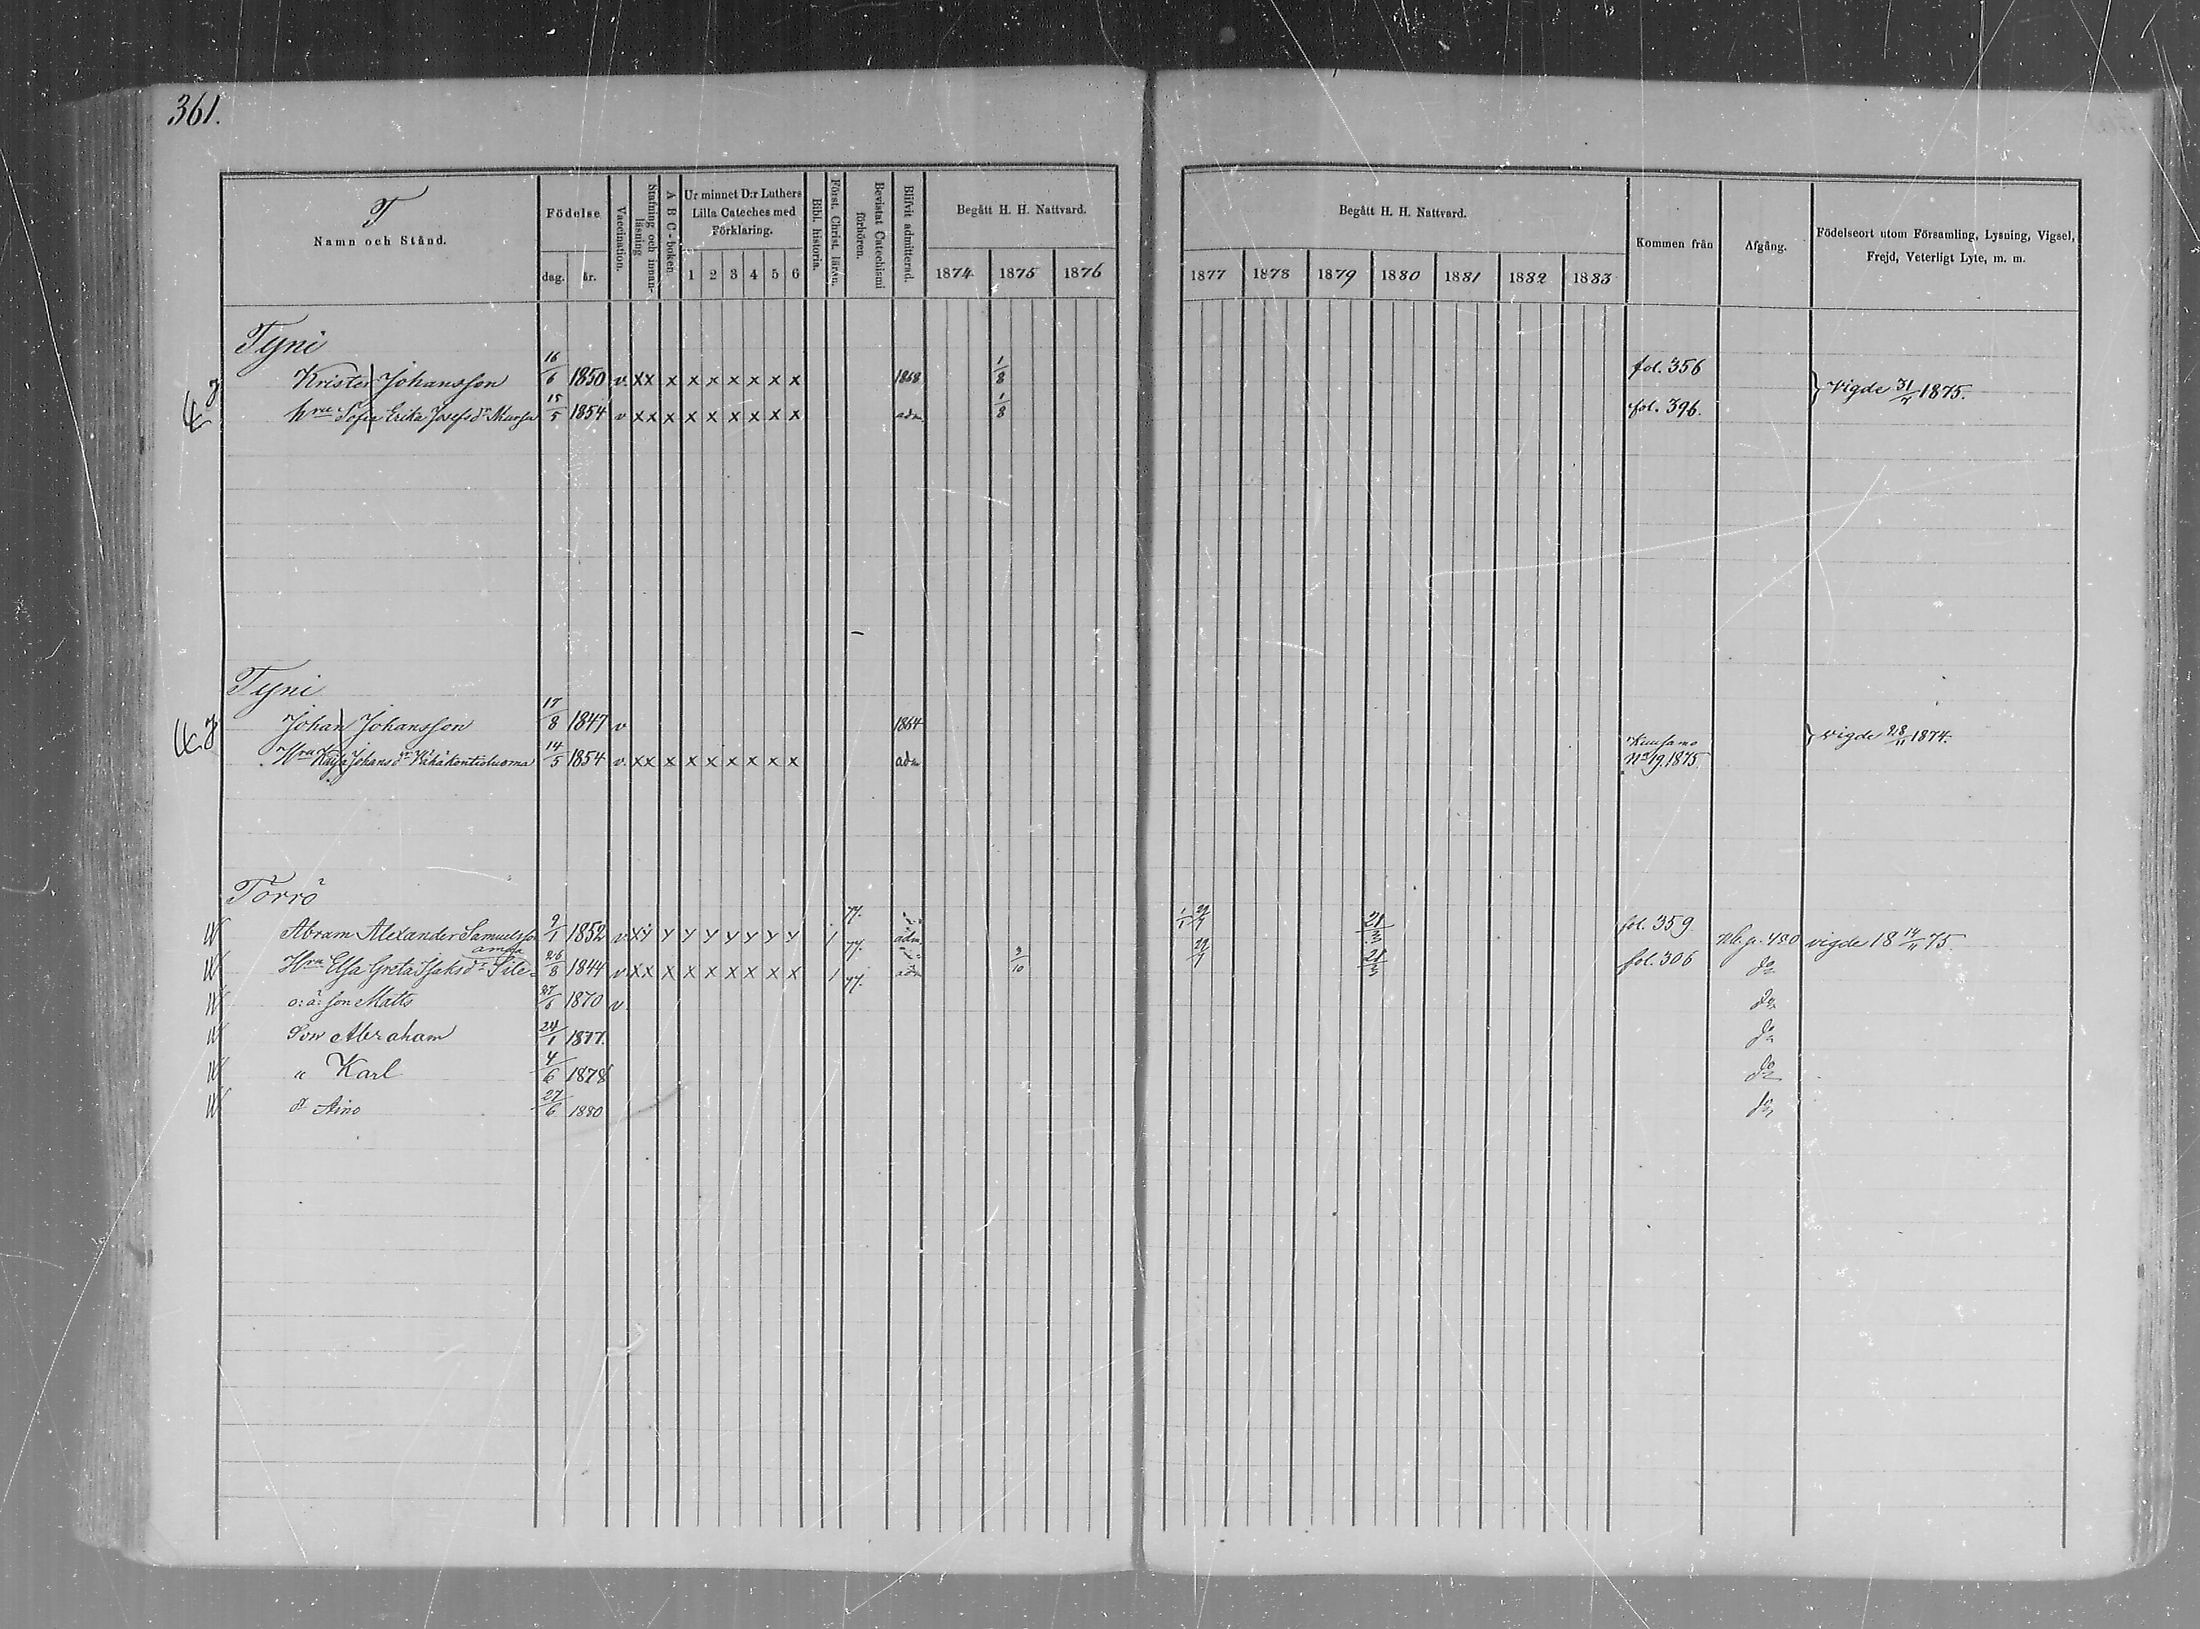 361.
T
Namn och Stånd.
Födelse
dag. år.
Vaccination.
Stafning och innanläsning
A B C-boken
Ur minnet D:r Luthers Lilla Cateches med Förklaring.
1 2 3 4 5 6
Bibl. historia.
Först. Christ. läran.
Bevistat Catechismi förhören.
Blifvit admitterad.
Begått H. H. Nattvard.
1874 1875 1876
Begått H. H. Nattvard.
1877 1878 1879 1880 1881 1882 1883
Kommen från
Afgång.
Födelseort utom Församling, Lysning, Vigsel, Frejd, Veterligt Lyte, m. m.
Tyni
Krister Johansson 16/6 1850 v. x x x x x x x x x 1868 1/8 fol. 356
hru Sofia Erika Josefsdr 15/5 1854 v x x x x x x x x x adm. 1/8 fol. 396. } Vigde 31/ 1875.
Tyni
Johan Johansson 17/8 1847 v 1864
Hru Kajsa Johansdr 14/5 1854 v. x x x x x x x x x adm Kuusamo No 19. 1875. } vigde 28/11 1874.
Törrö
Abram Alexander Samuelsson 9/1 1852 v. x y y y y y y y y 1 yy. adm. 21/3 fol. 359 p. 480 vigde 18 14/11 75.
Hru Elsa Greta Isaksdr 26/8 1844 v. x x x x x x x x x 1 yy. adm 3/10 21/3 fol. 306 do
o: ä: son Matts 27/6 1870 v. do
Son Abraham 24/1 1877. do
" Karl 4/6 1878 do
dr Aino 27/6 1880 do